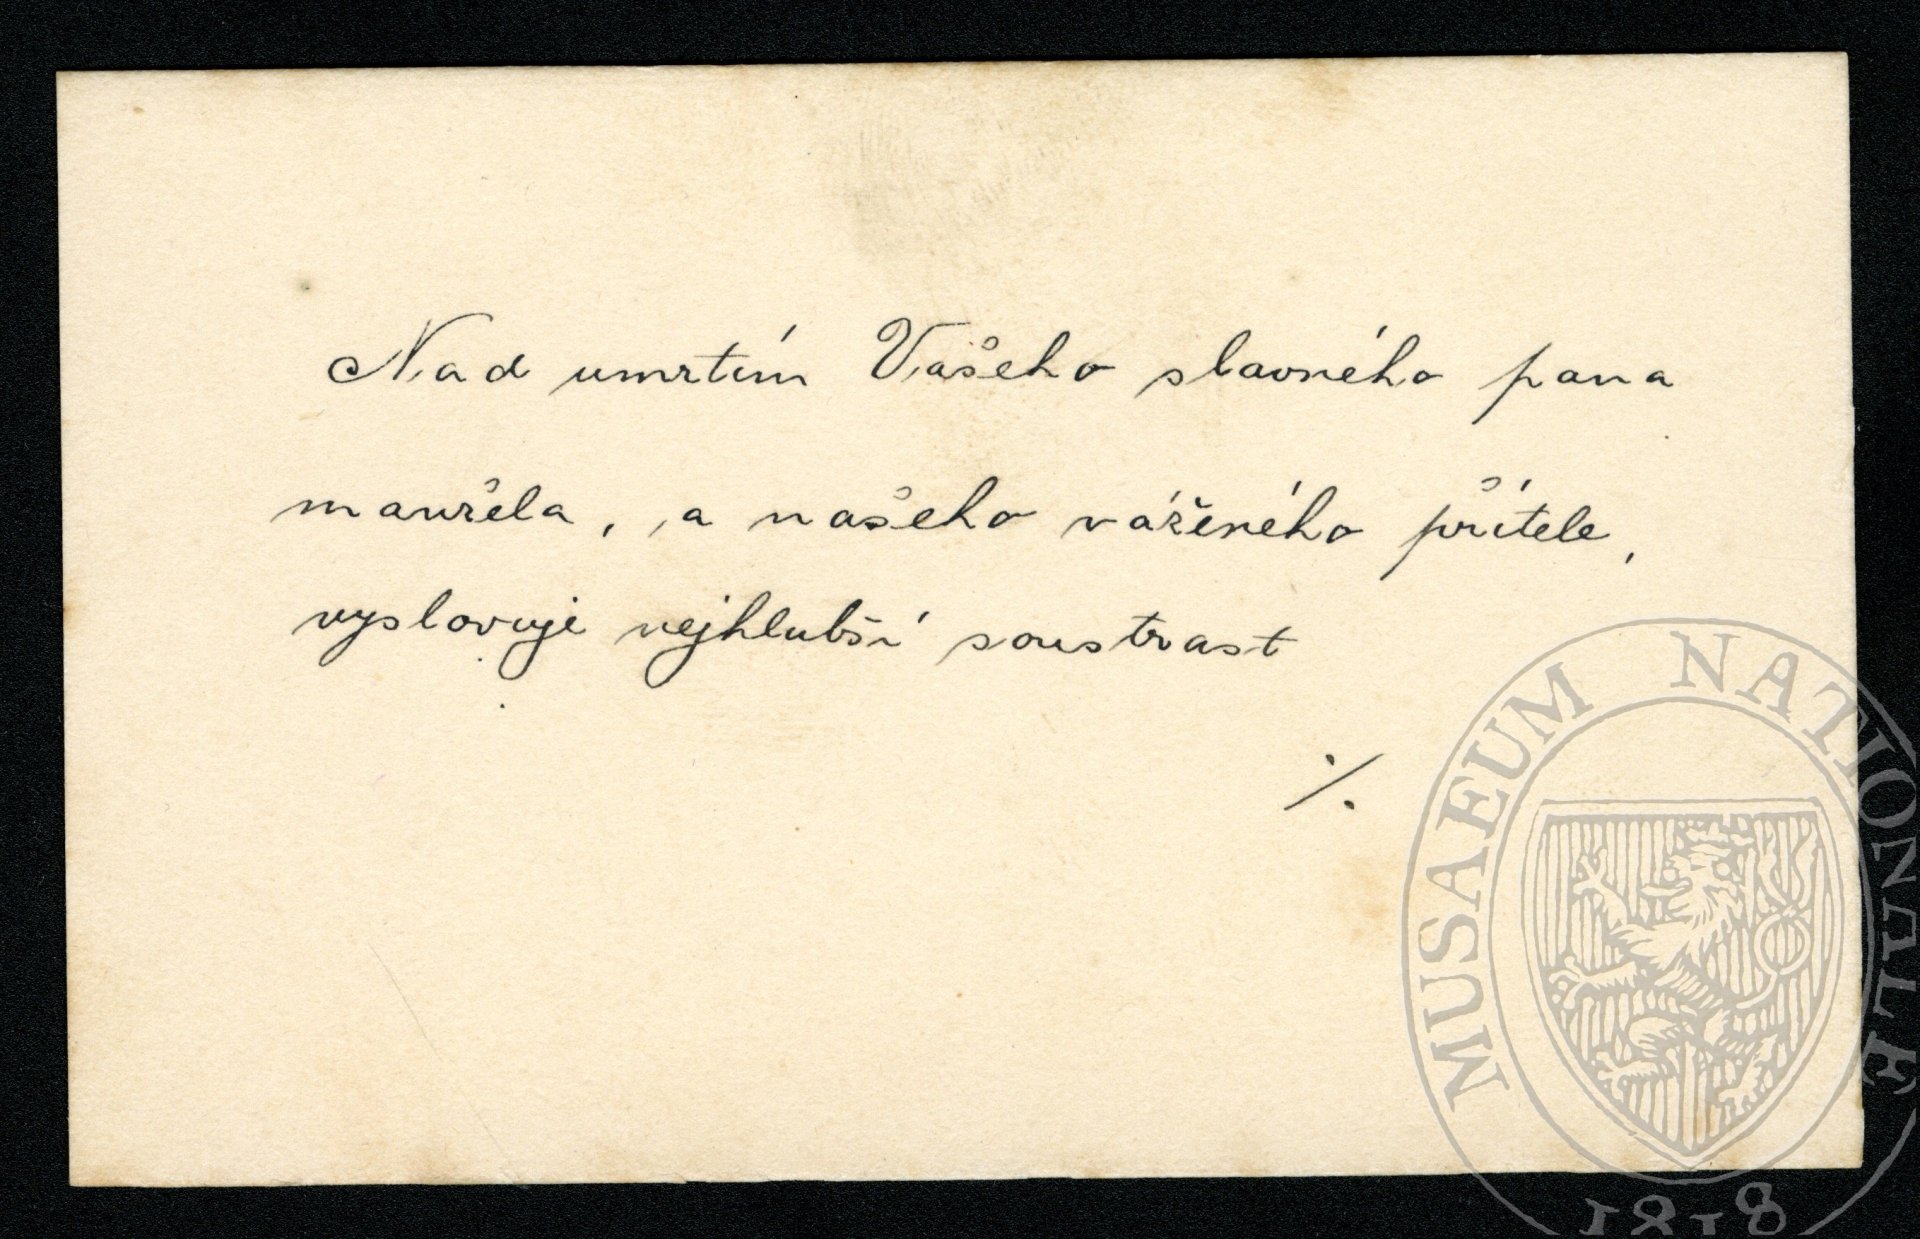 Nad umrtím Vašeho slavného pana
manžela, a našeho váženého přítele,
vyslovuje nejhlubší soustrast
./.
MUSAEUM NATIONALE
1818